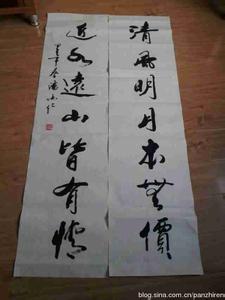 清風明月本無價
近水遠山皆有情
blog.sina.com.cn/panzhiren